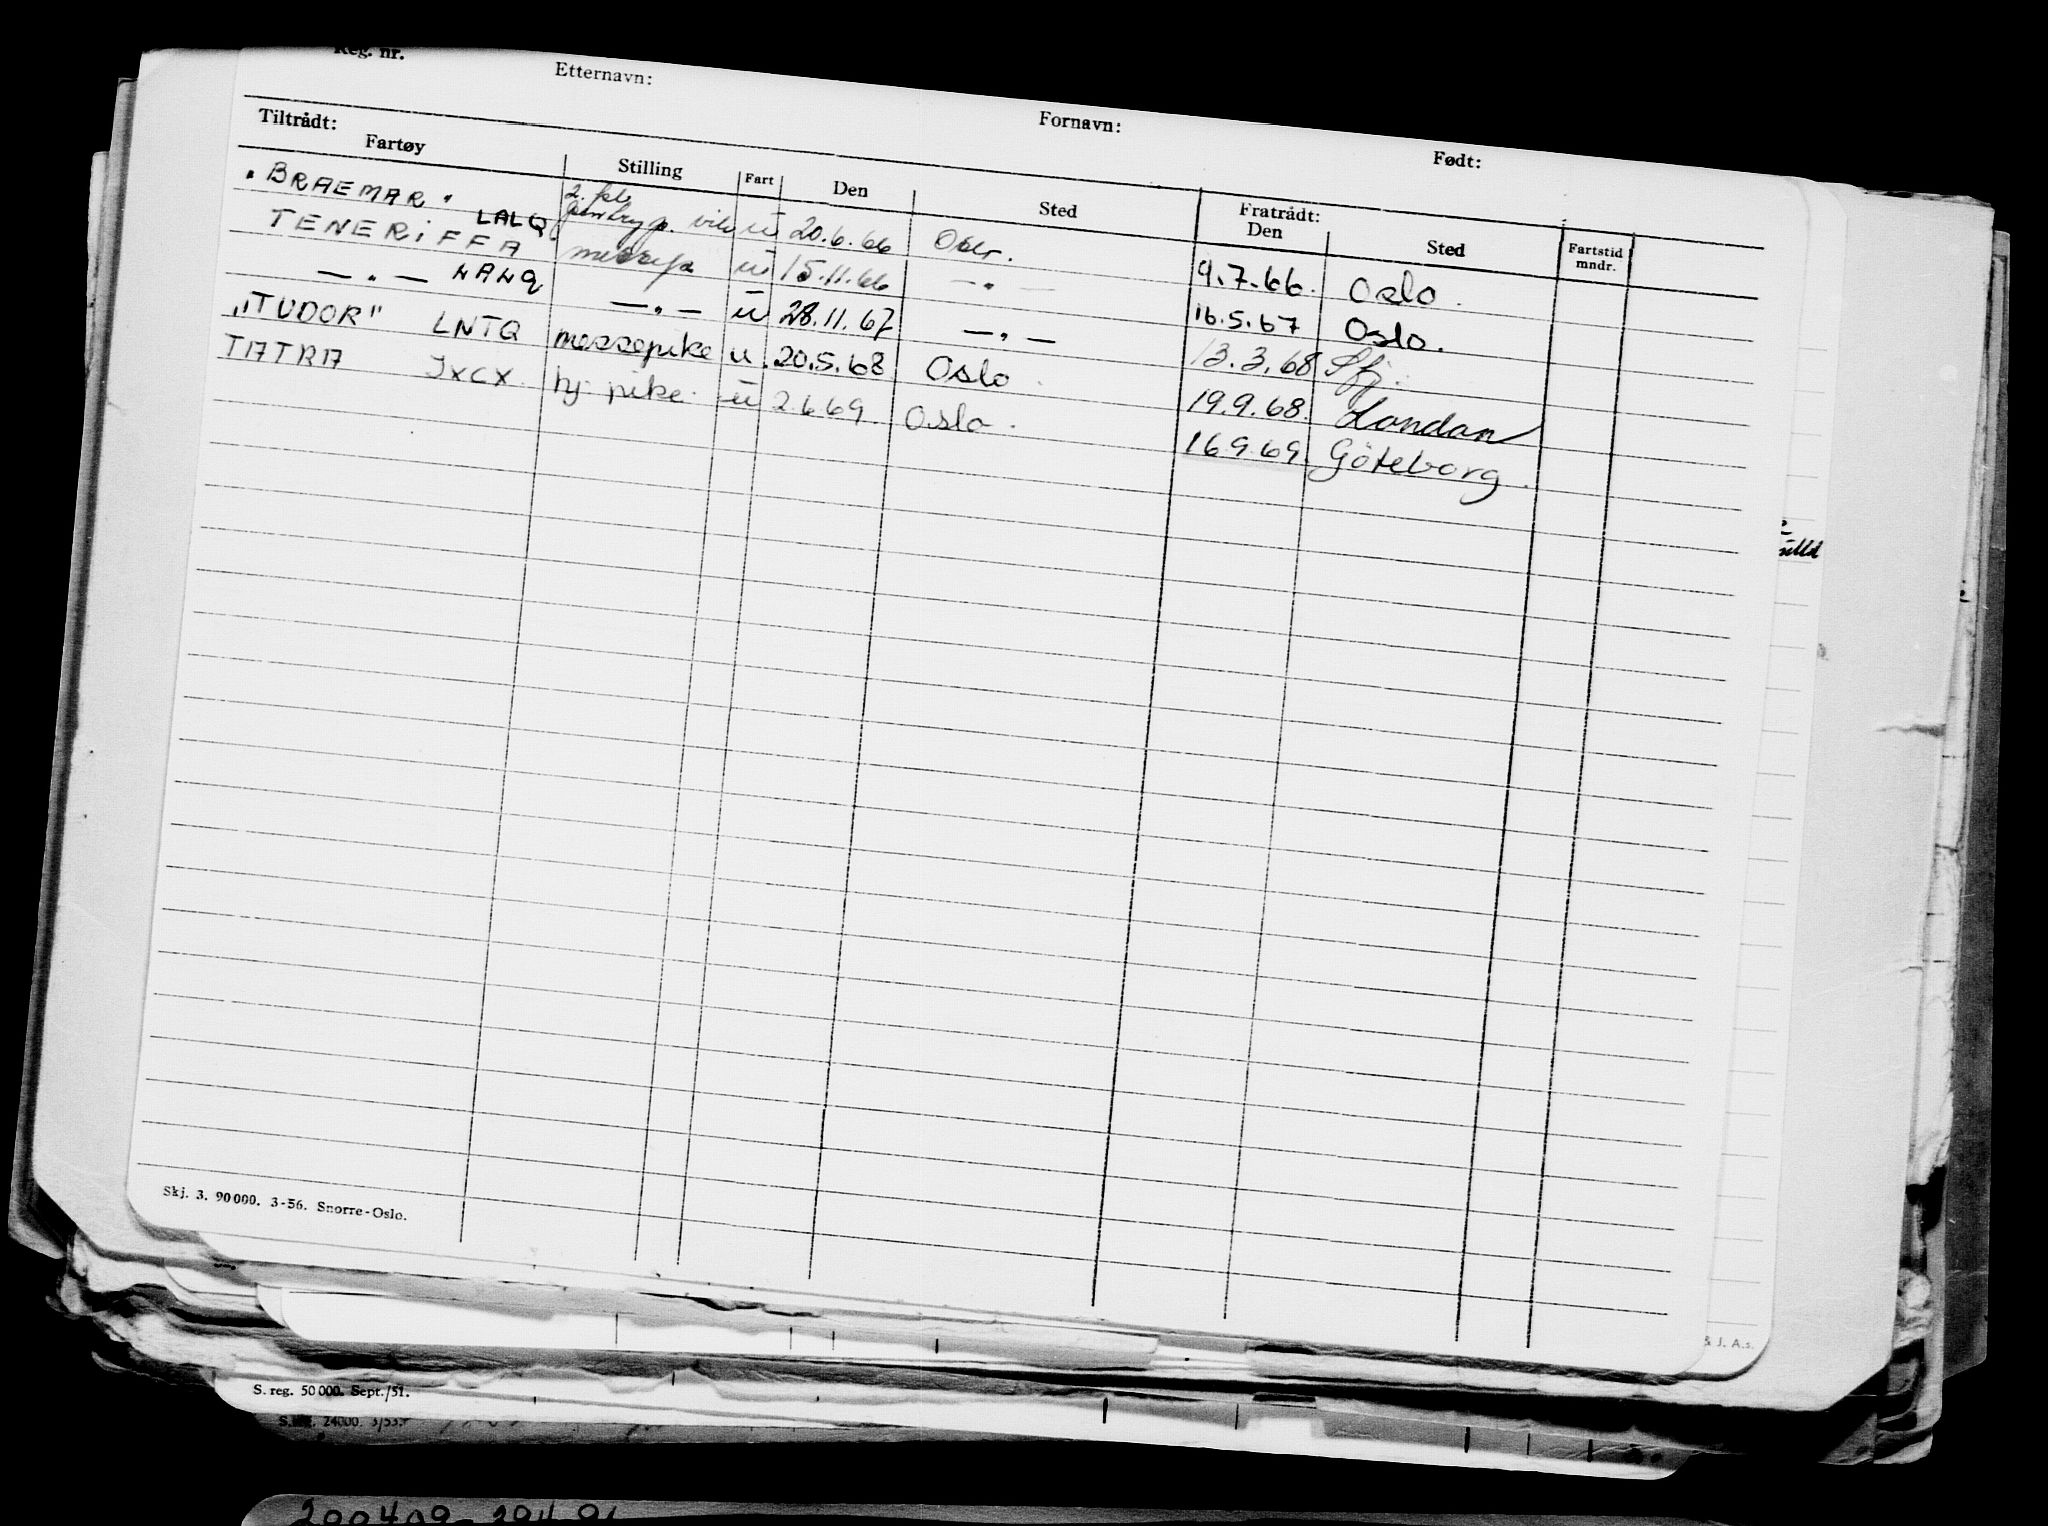 Reg. nr. Etternavn: Fornavn: Født:
Tiltrådt: Fratrådt:
Fartøy Stilling Fart Den Sted Den Sted Fartstid mndr.
"BRAEMAR" 2. kl. pantry p. vik u 20.6.66 Oslo. 9.7.66. Oslo.
TENERiFFA LALQ messep u 15.11.66 — " — 16.5.67 Oslo.
— " — LALQ — " — u 28.11.67 — " — 13.3.68 Sfj.
"TUDOR" LNTQ messepike u. 20.5.68 Oslo. 19.9.68. London
TATRA JXCX. hj. pike. u 2.6.69. Oslo. 16.9.69. Göteborg.
Skj. 3. 90000. 3-56. Snorre-Oslo.
& J. A.s.
S. reg. 50000. Sept./51.
S. reg. 24000. 3/53.